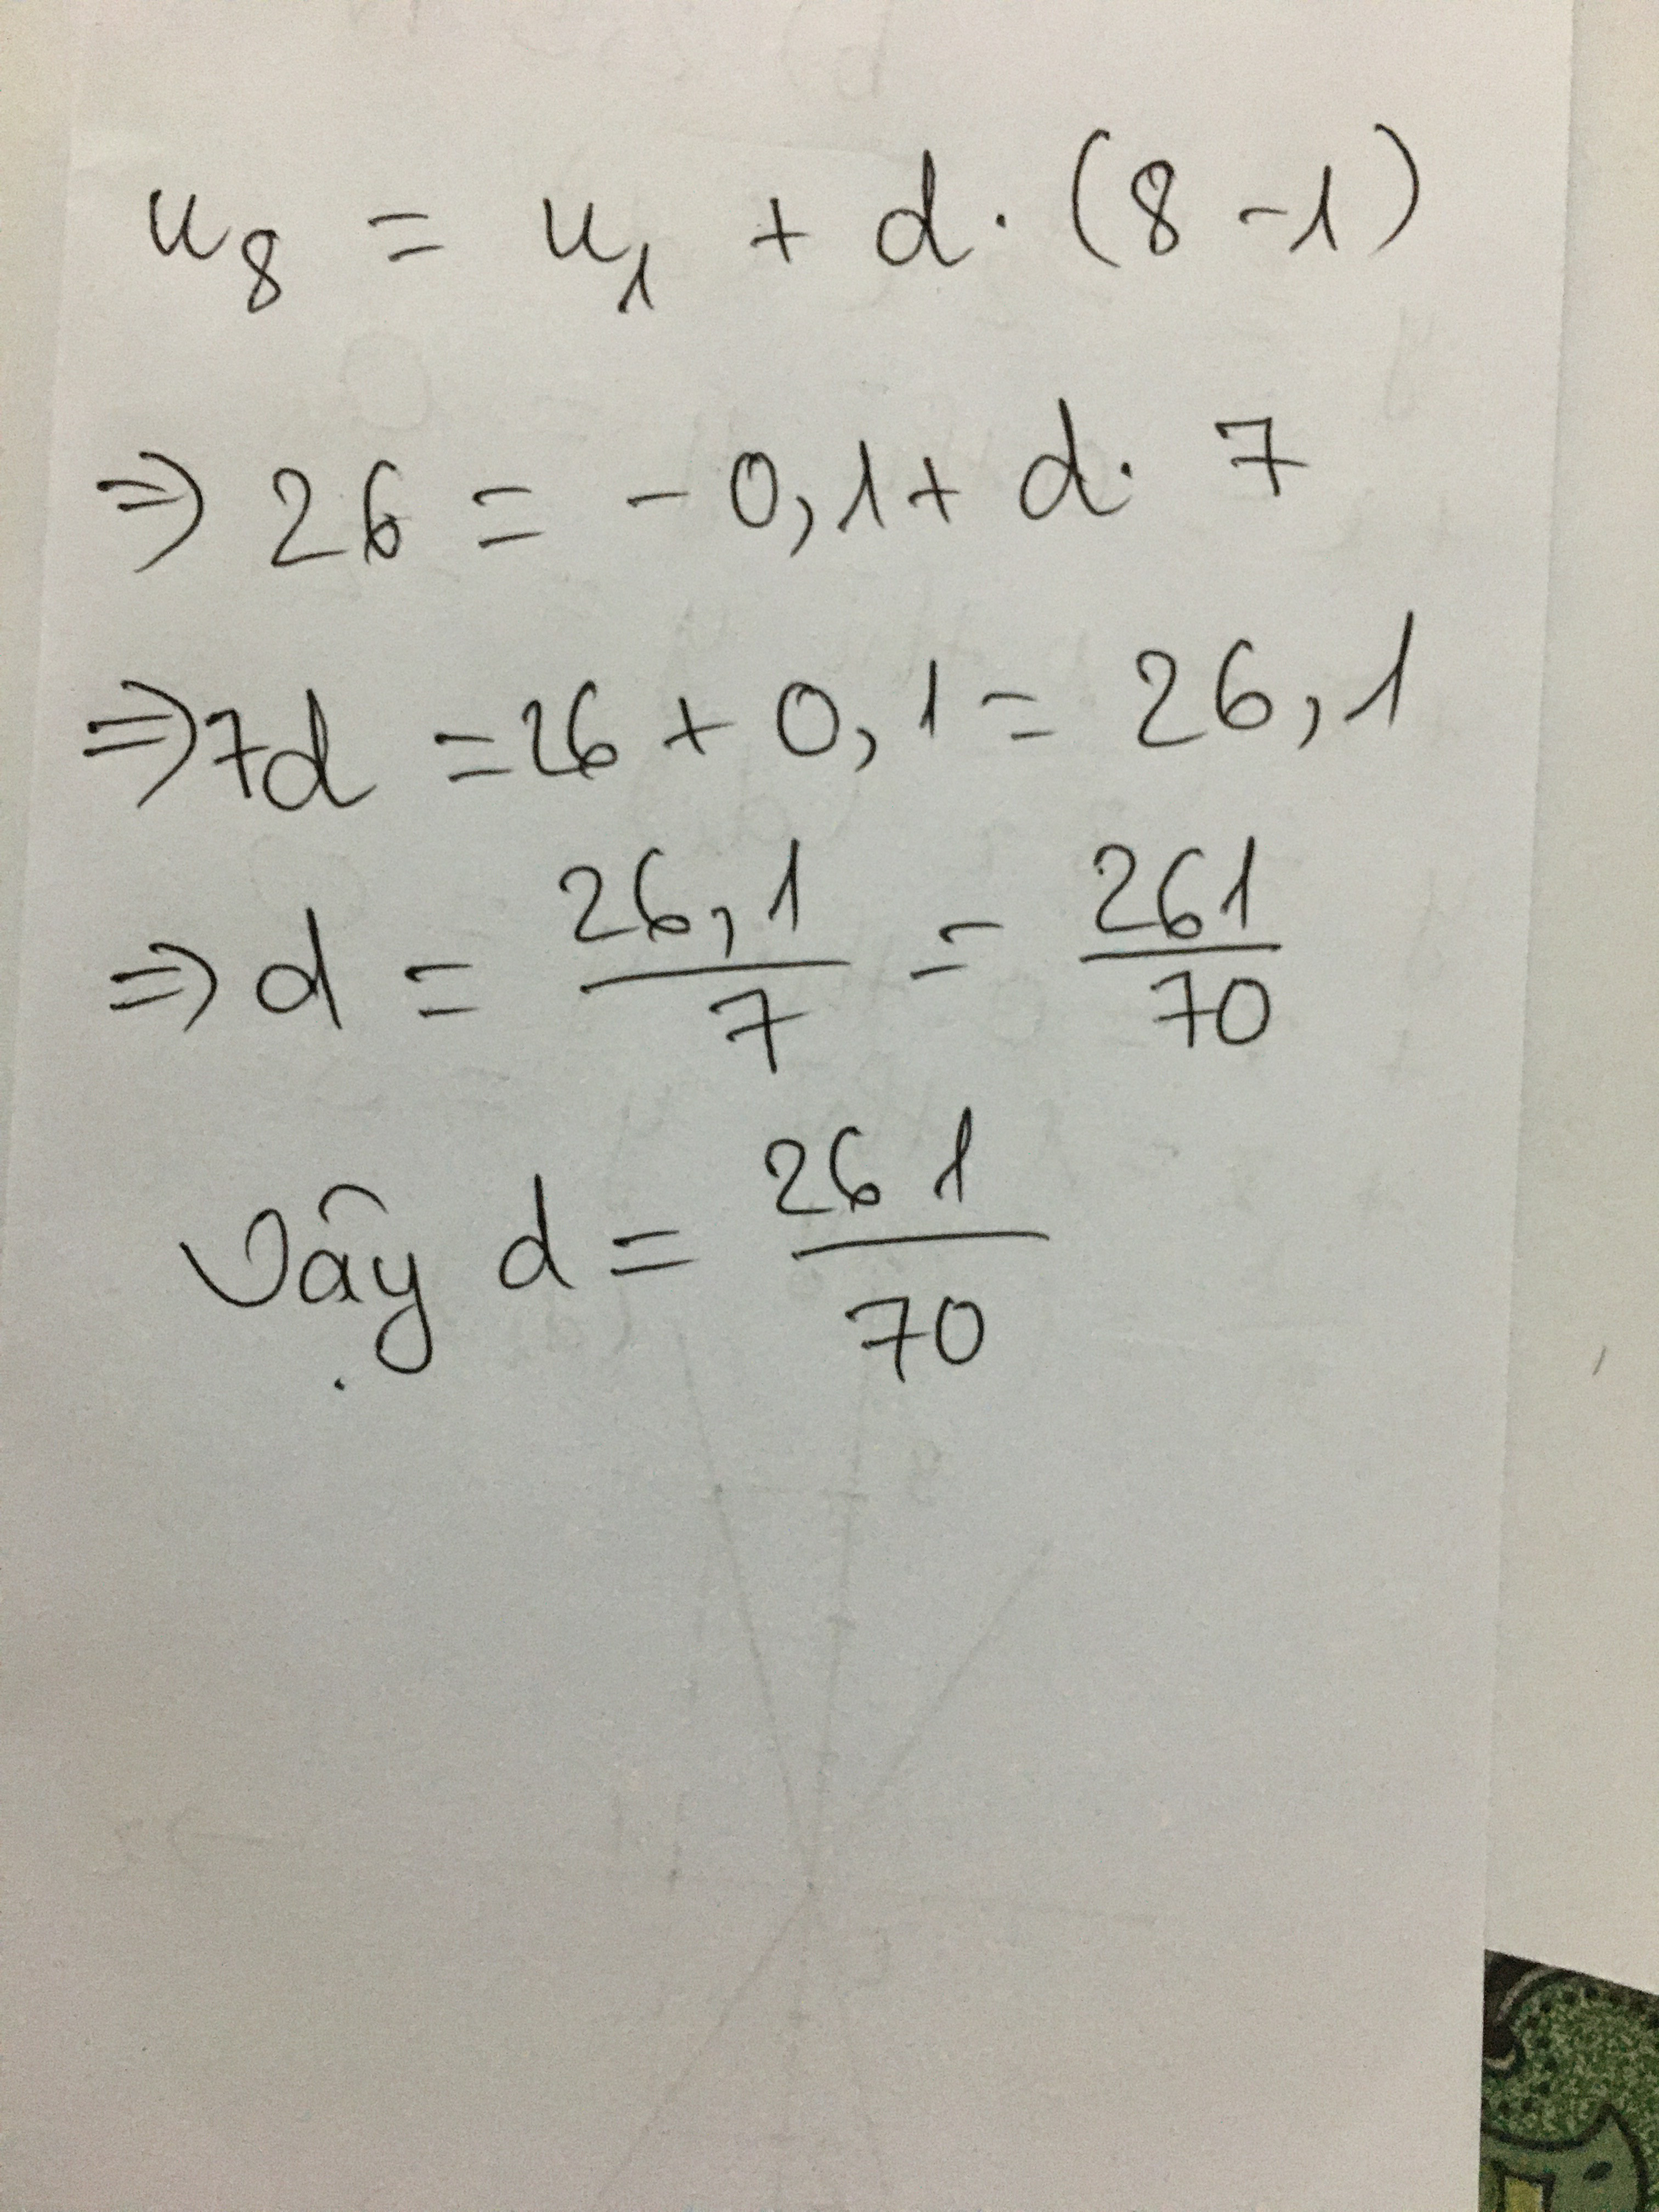 u₈ = u₁ + d . (8 - 1)
⇒ 26 = - 0,1 + d . 7
⇒ 7d = 26 + 0,1 = 26,1
⇒ d = 26,1/7 = 261/70
Vậy d = 261/70